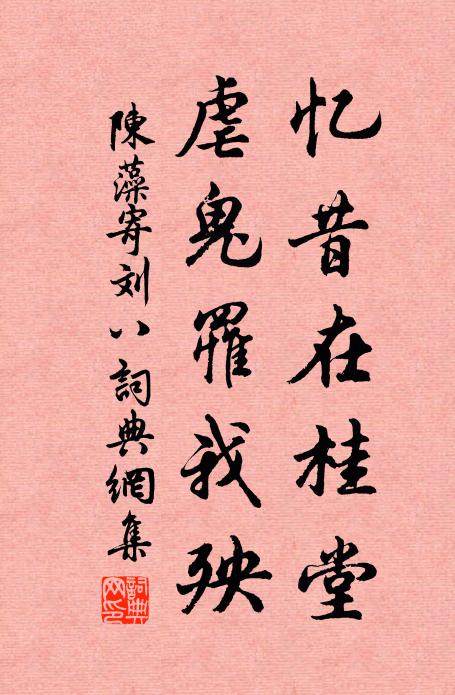 忆昔在桂堂
虐鬼罹我殃
陳藻寄刘八詞典網集
詞典網印